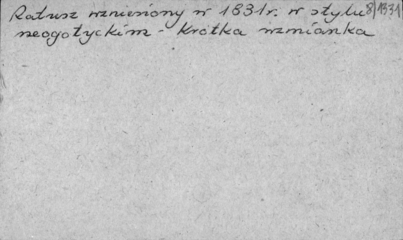 Ratusz wzniesiony w 1831r. w stylu 8/1331
neogotyckim - krótka wzmianka